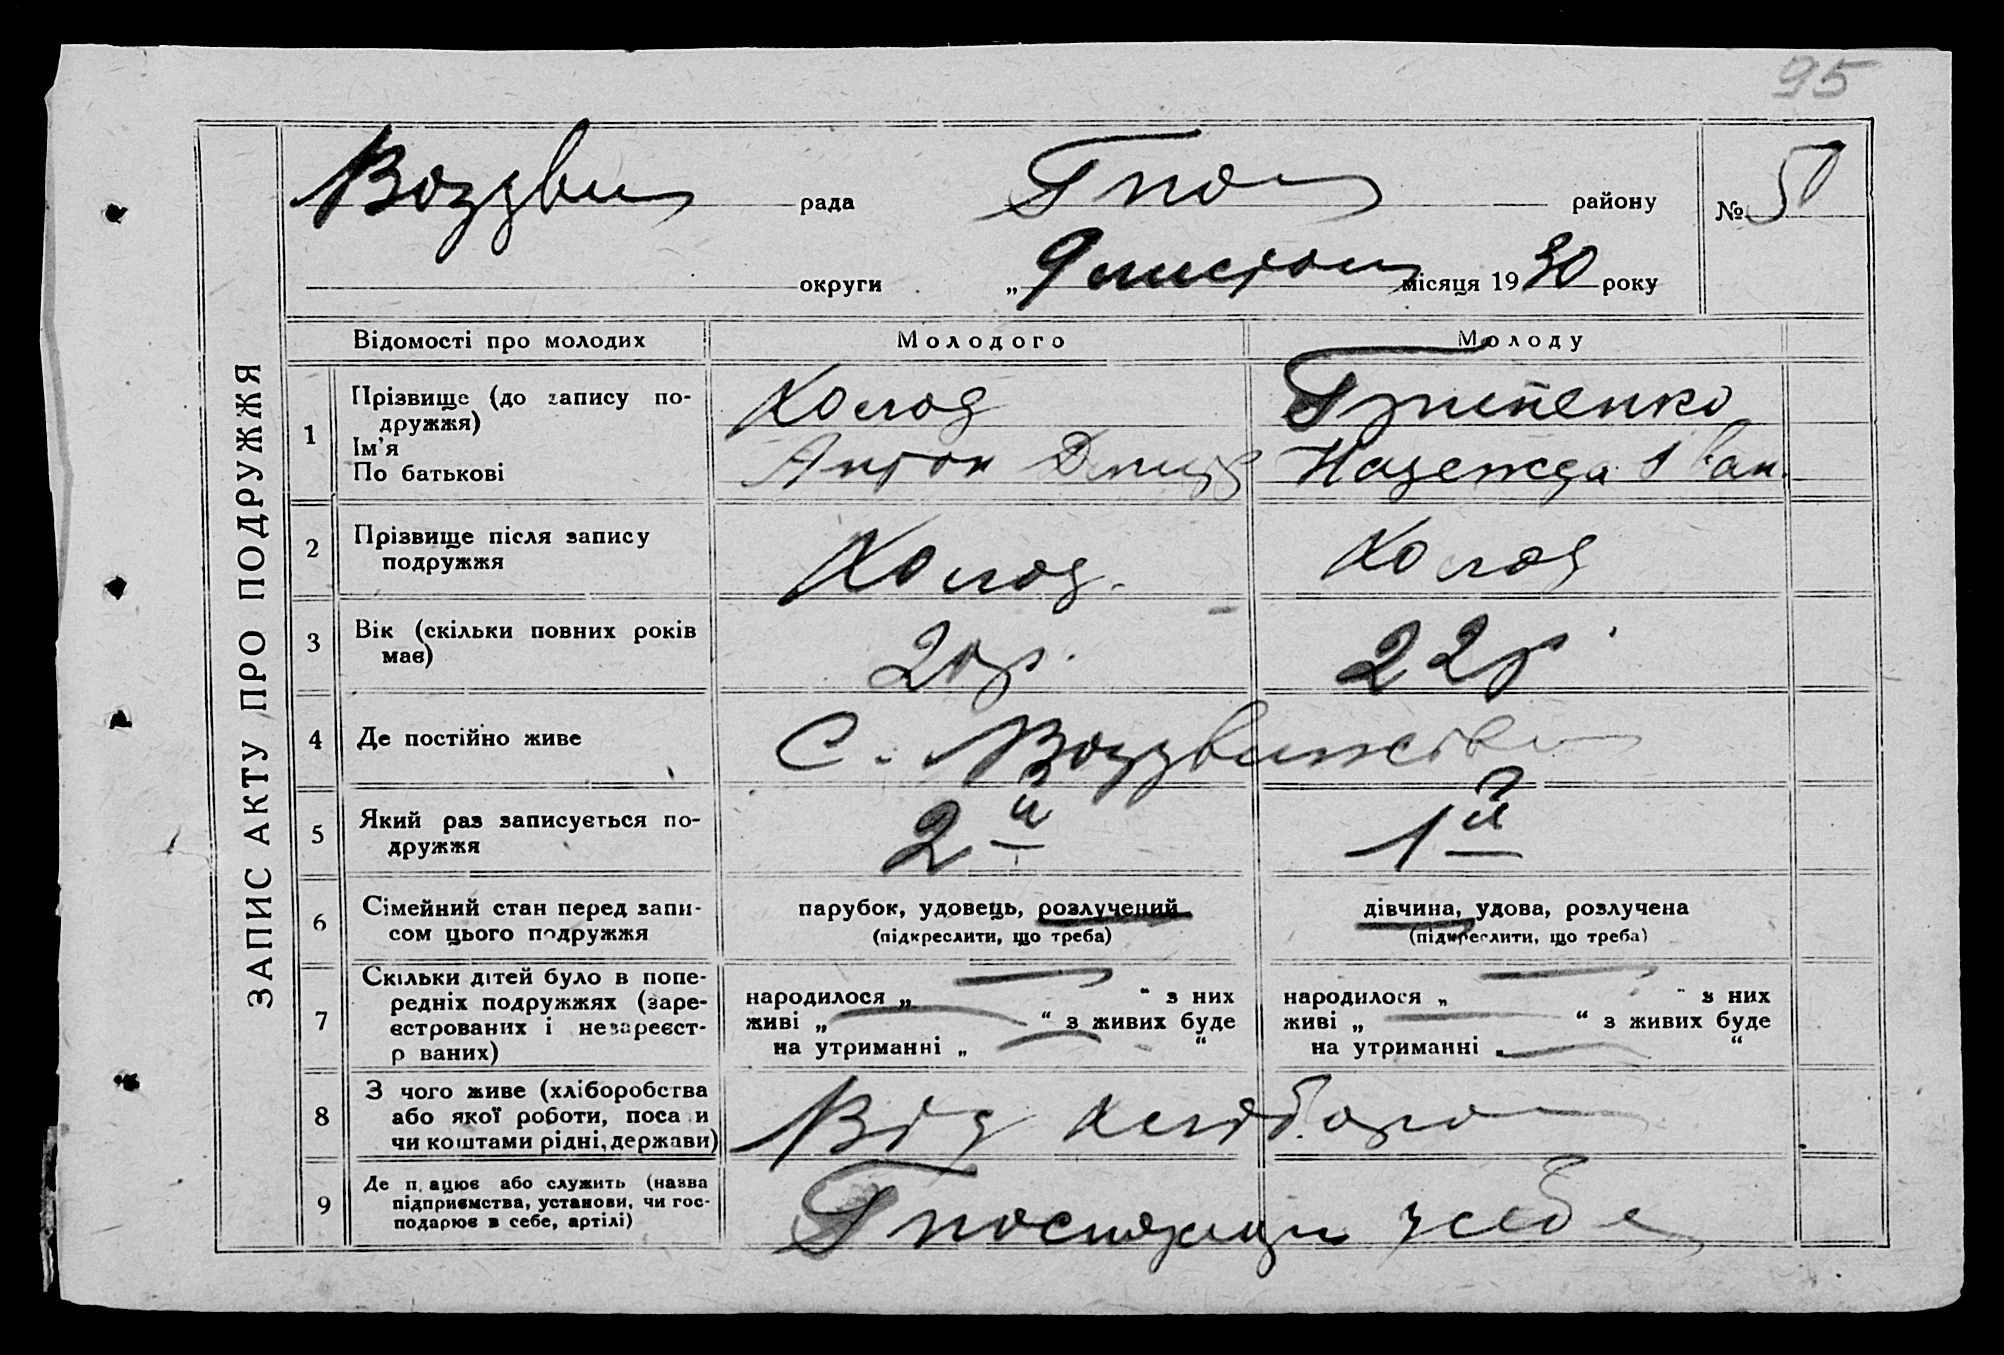 95
Воздви рада району № 50
округи „9 листоп місяця 1930 року
ЗАПИС АКТУ ПРО ПОДРУЖЖЯ
Відомості про молодих Молодого Молоду
1 Прізвище (до запису по-
дружжя) Холод
Ім'я
По батькові Антон Дмитр Надежда Іван.
2 Прізвище після запису
подружжя Холод. Холод
3 Вік (скільки повних років
має) 20р. 22р.
4 Де постійно живе С. Воздвижівка
5 Який раз записується по-
дружжя 2й 1й
6 Сімейний стан перед запи-
сом цього подружжя
парубок, удовець, розлучений
(підкреслити, що треба)
дівчина, удова, розлучена
(підкреслити, що треба)
7 Скільки дітей було в попе-
редніх подружжях (заре-
єстрованих і незареєст-
р ваних)
народилося „ “ з них
живі „ “ з живих буде
на утриманні „ “
народилося „ “ з них
живі „ “ з живих буде
на утриманні „ “
8 З чого живе (хліборобства
або якої роботи, поса и
чи коштами рідні, держави)
Від хлібороб
9 Де п ацює або служить (назва
підприємства, установи, чи гос-
подарює в себе, артілі)
у себе